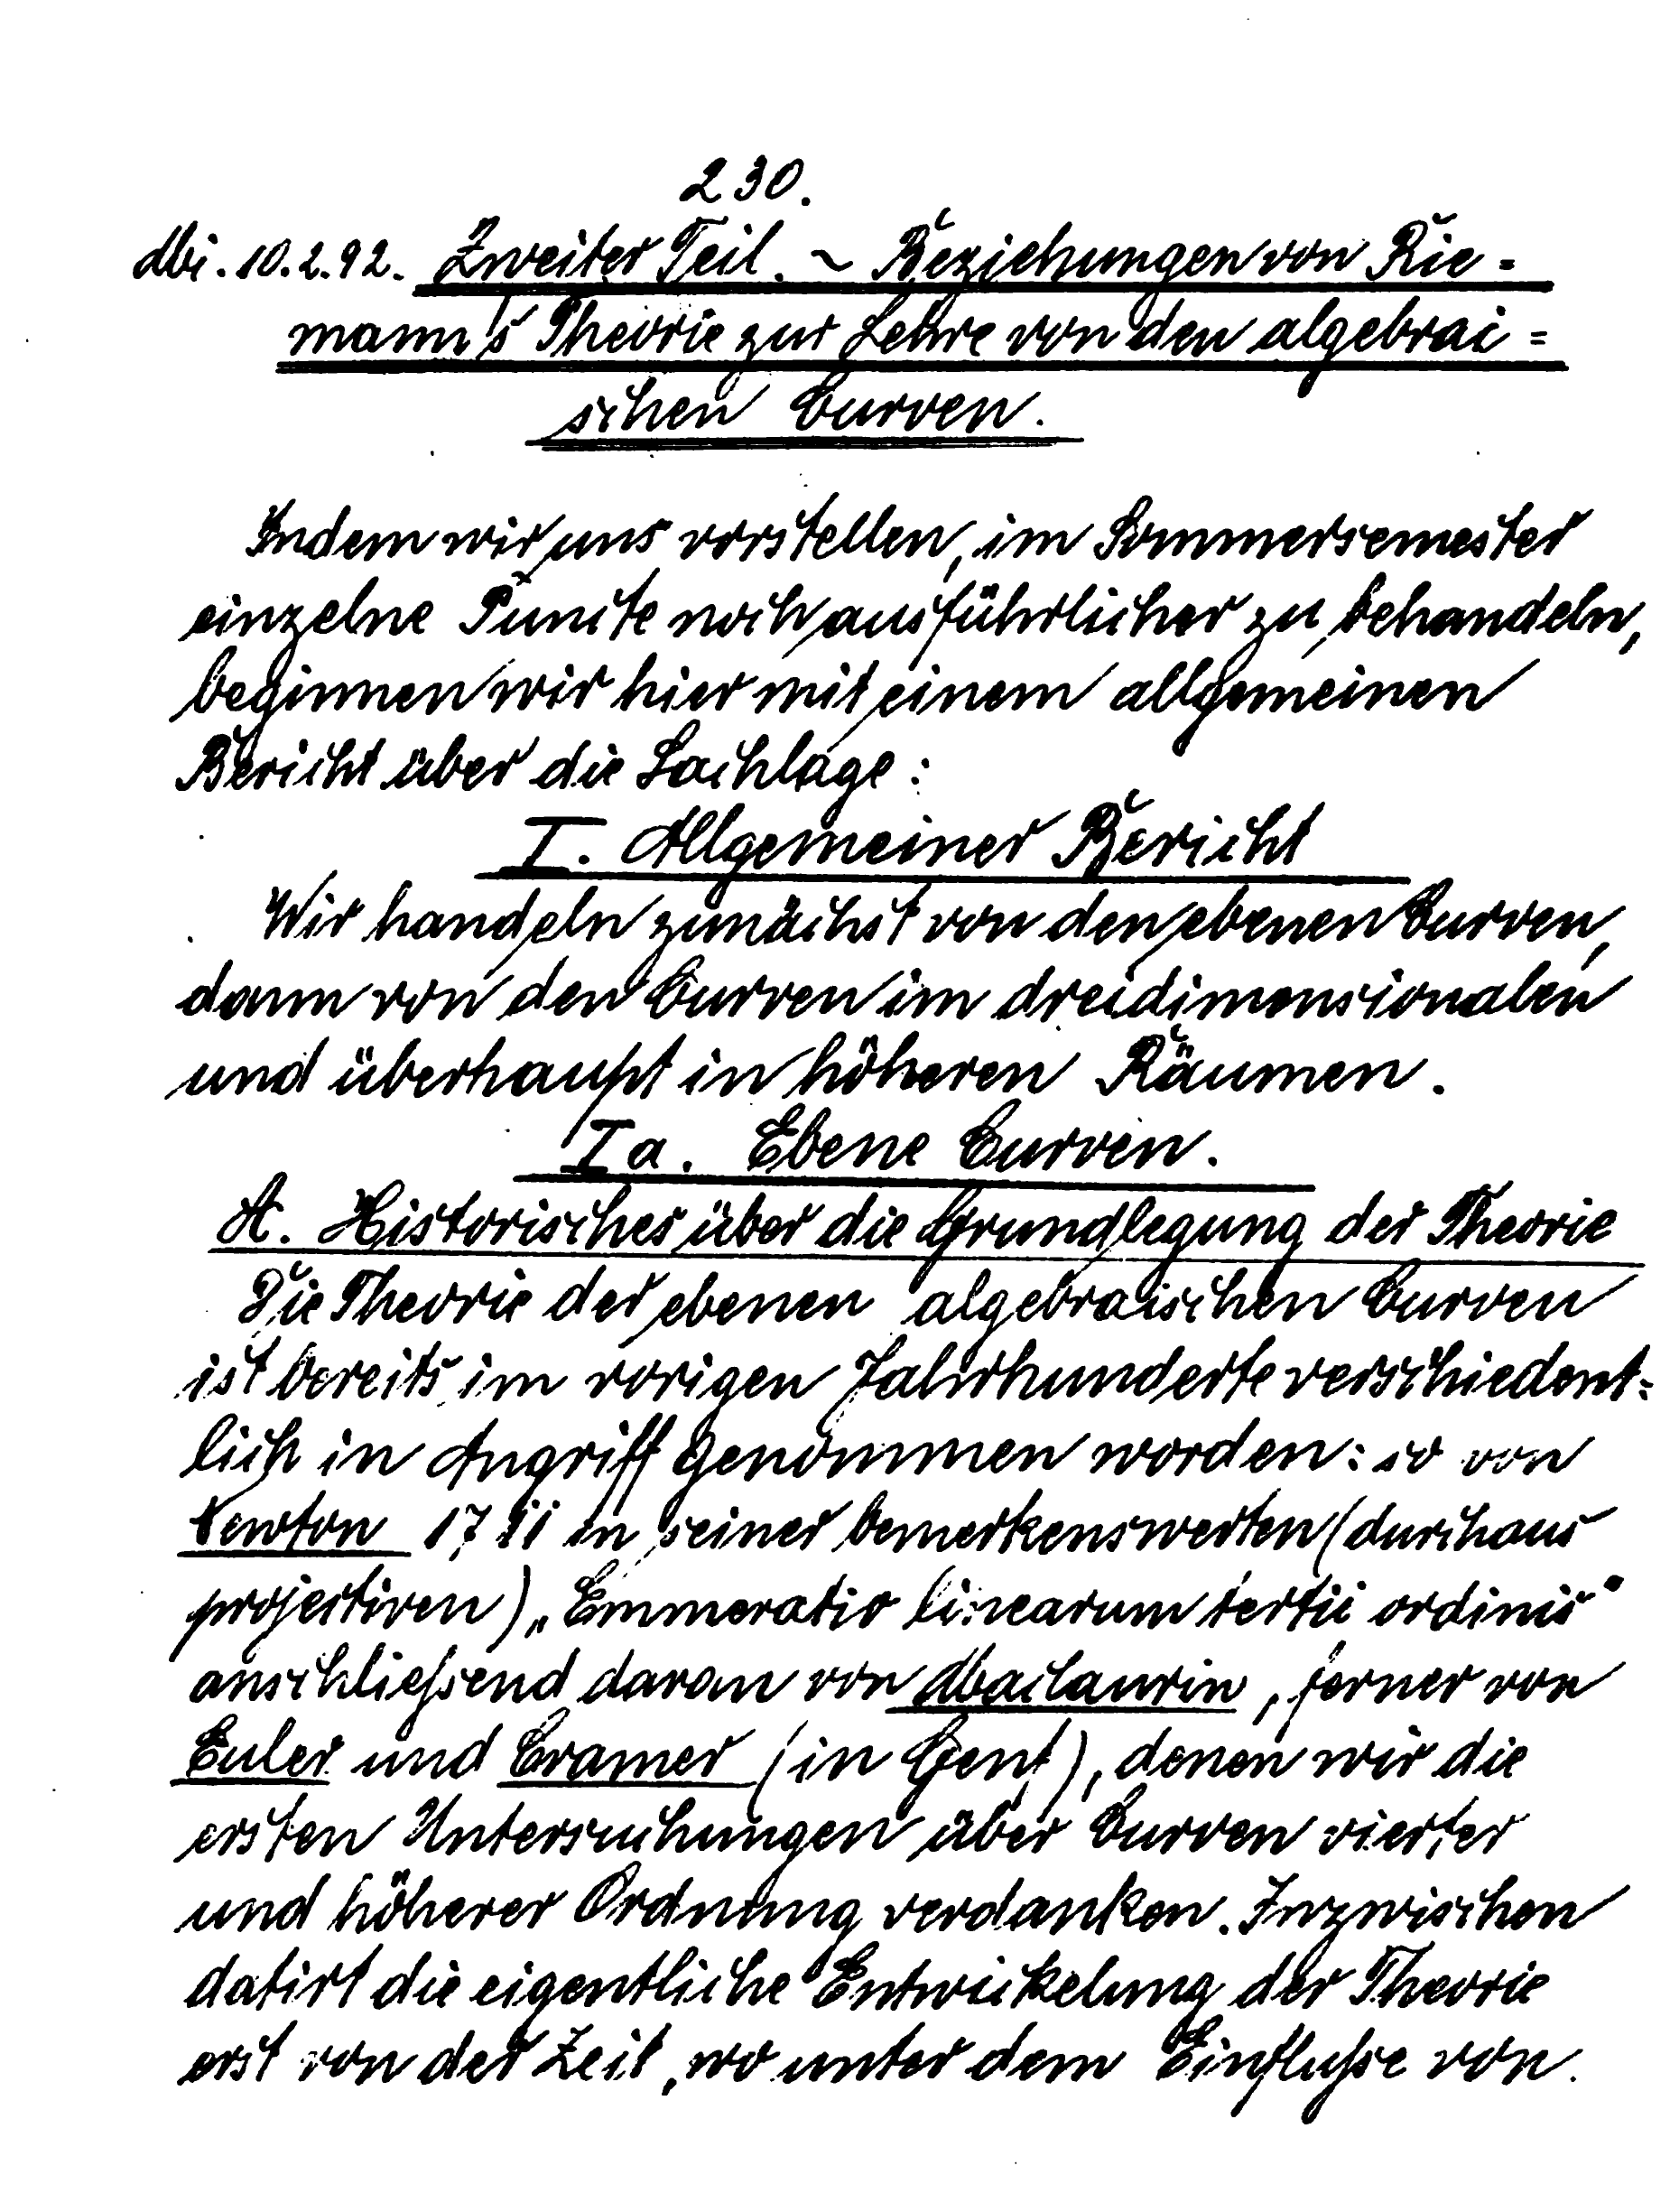 230.
Mi. 10.2.92. Zweiter Teil. ~ Beziehungen von Rie=
mann's Theorie zur Lehre von den algebrai=
schen Curven.
Indem wir uns vorstellen, im Sommersemester
einzelne Puncte noch ausführlicher zu behandeln,
beginnen wir hier mit einem allgemeinen
Bericht über die Sachlage:
I. Allgemeiner Bericht
Wir handeln zunächst von den ebenen Curven,
dann von den Curven im dreidimensionalen
und überhaupt in höheren Räumen.
Ia. Ebene Curven.
A. Historisches über die Grundlegung der Theorie
Die Theorie der ebenen algebraischen Curven
ist bereits im vorigen Jahrhunderte verschiedent=
lich in Angriff genommen worden: so von
Newton in seiner bemerkenswerten (durchaus
projectiven) „Enumeratio linearum tertii ordinis“
anschließend daran von Maclaurin, ferner von
Euler und Cramer (in Genf), denen wir die
ersten Untersuchungen über Curven vierter
und höherer Ordnung verdanken. Inzwischen
datirt die eigentliche Entwickelung der Theorie
erst von der Zeit, wo unter dem Einfluße von